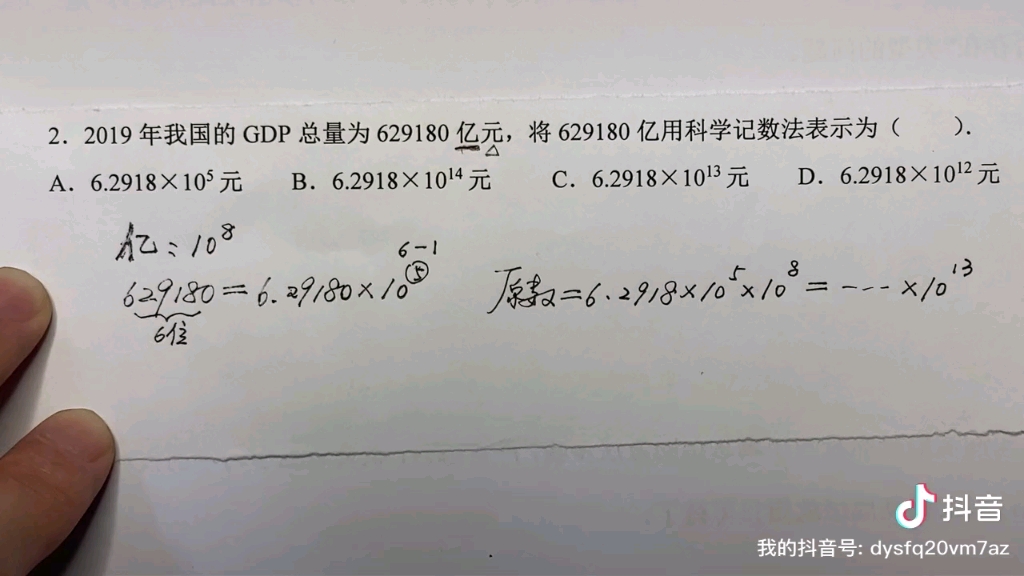 2．2019 年我国的 GDP 总量为 629180 亿元，将 629180 亿用科学记数法表示为（　　）.
A．6.2918×10⁵ 元　　B．6.2918×10¹⁴ 元　　C．6.2918×10¹³ 元　　D．6.2918×10¹² 元
亿：10⁸
6-1
629180=6.29180×10⑤
6位
原数=6.2918×10⁵×10⁸=---×10¹³
抖音
我的抖音号: dysfq20vm7az